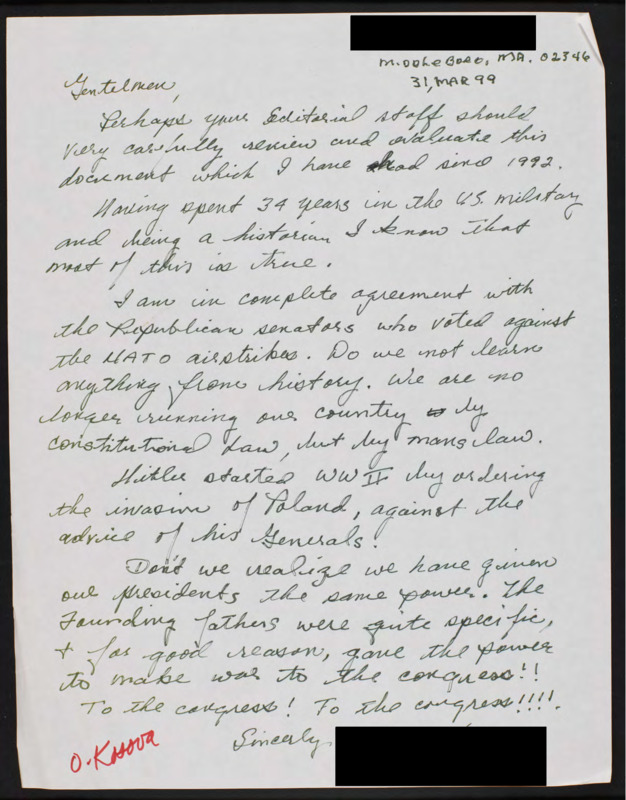 Middleboro, MA. 02346
31, MAR 99
Gentelmen,
Perhaps your Editorial staff should
very carfully review and evaluate this
document which I have had since 1992.
Having spent 34 years in the U.S. military
and being a historian I know that
most of this is true.
I am in complete agreement with
the Republican senators who voted against
the NATO airstrikes. Do we not learn
anything from history. We are no
longer running our country by
constitutional law, but by mans law.
Hitler started WW II by ordering
the invasion of Poland, against the
advice of his Generals.
Don't we realize we have given
our presidents the same power. The
Founding fathers were quite specific,
+ for good reason, gave the power
to make war to the congress!!
To the congress! To the congress!!!!.
Sincerly,
O-Kosova